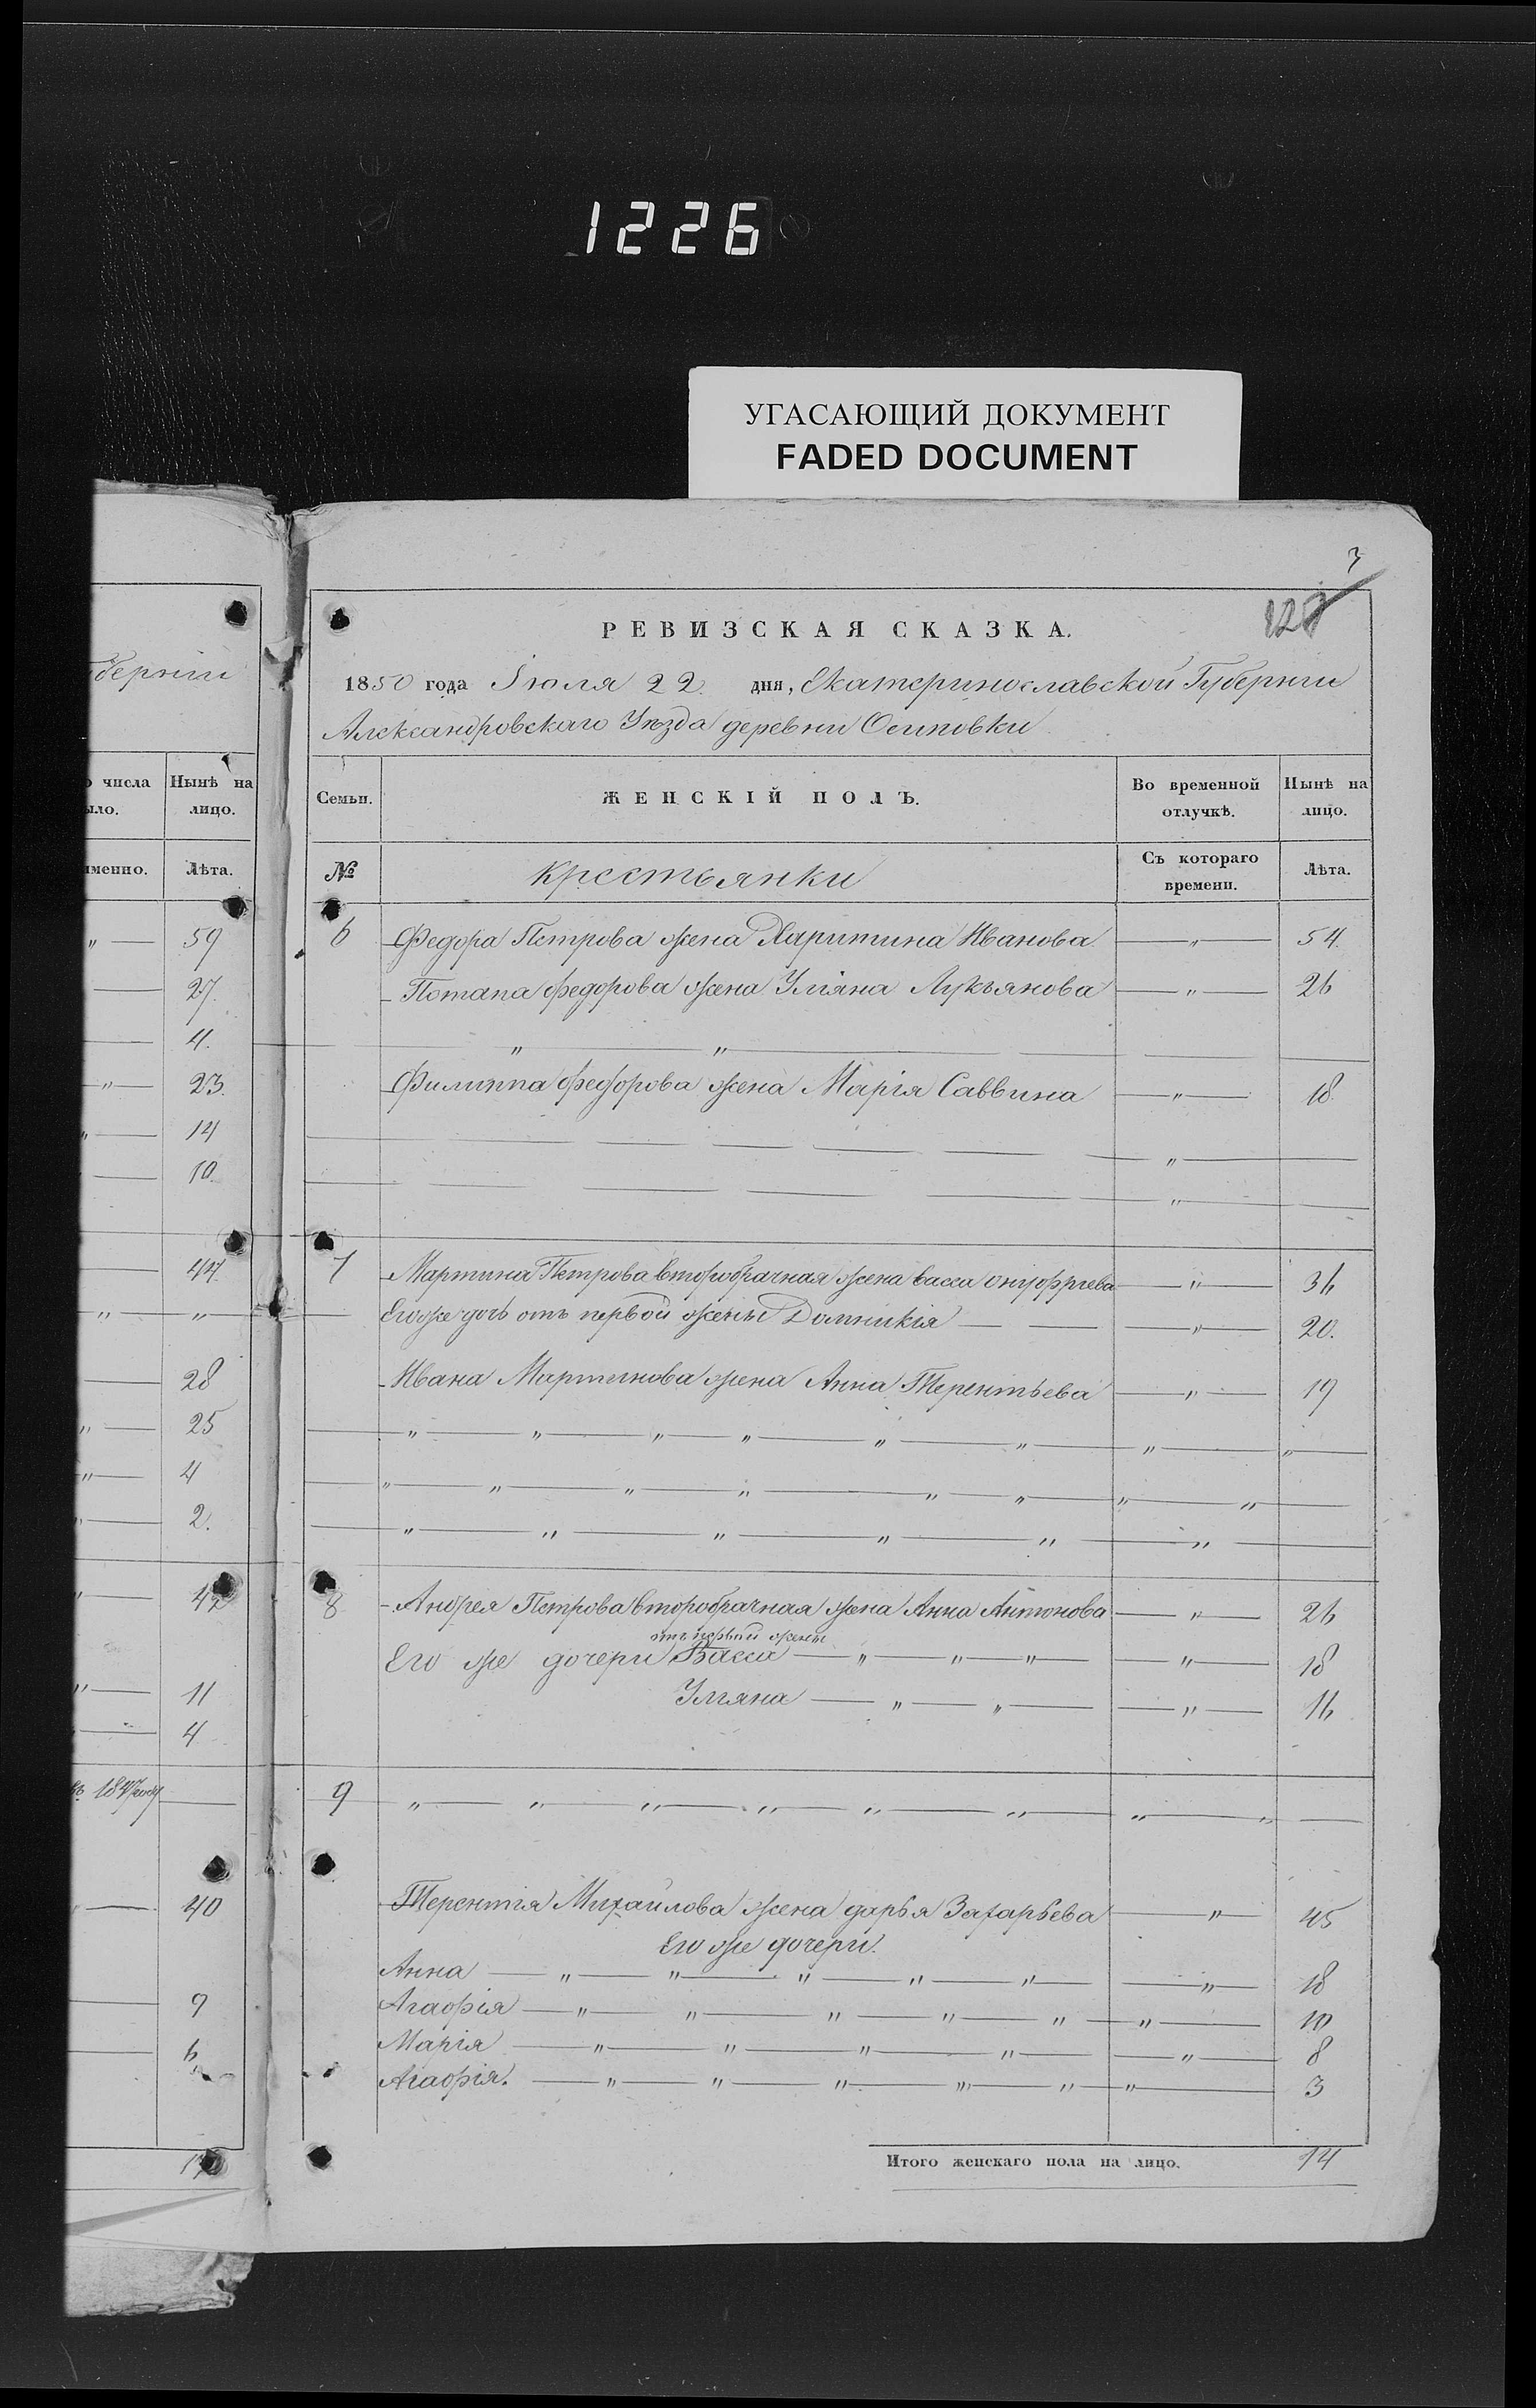 1226
УГАСАЮЩИЙ ДОКУМЕНТ
FADED DOCUMENT
3
128
РЕВИЗСКАЯ СКАЗКА.
1850 года Іюля 22. дня, Екатеринославской Губерніи
Александровскаго Уѣзда деревни Осиповки
Семьи. ЖЕНСКІЙ ПОЛЪ. Во временной отлучкѣ. Нынѣ на лицо.
№ Крестьянки Съ котораго времени. Лѣта.
6 Федора Петрова жена Харитина Иванова — " — 54.
Потапа Федорова жена Уліяна Лукьянова — " — 26
" — "
Филиппа Федорова жена Марія Саввина — " — 18.
— " —
— " —
7 Мартина Петрова второбрачная жена васса онуофріева — " — 36
Его же дочь отъ первой жены Домникія — — " — 20.
Ивана Мартинова жена Анна Терентьева — " — 19
" — " — " — " — " — " — " — "
" — " — " — " — " — " — " — "
" — " — " — " — " — "
8 Андрея Петрова второбрачная жена Анна Антонова — " — 26
отъ первой жены
Его же дочери Васса — " — " — " — " — 18
Уліяна — " — " — " — 16
9 " — " — " — " — " — " — " — "
Терентія Михайлова жена дарья Захарьева — " — 45
Его же дочери.
Анна — " — " — " — " — " — " — 18
Агафія — " — " — " — " — " — " — 10
Марія — " — " — " — " — " — 8
Агафія. — " — " — " — " — " — " — 3
Итого женскаго пола на лицо. 14
берніи
числа
ыло.
Нынѣ на
лицо.
именно.
Лѣта.
" — 59
— 27.
— 4.
" — 23.
" — 14
— 10.
— 44.
" — "
— 28
" — 25
" — 4
" — 2.
" — 42
" — 11
— 4
1847 году
— 40
— 9
— 6